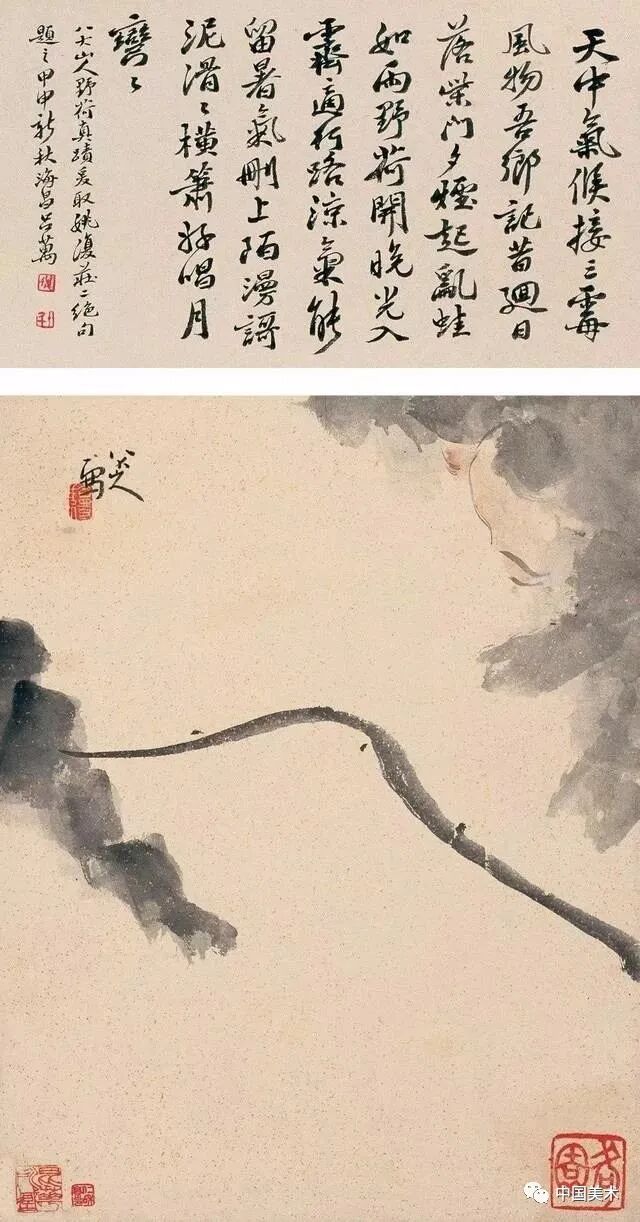 天中氣候接三霉
風物吾鄉記昔迴日
落柴門夕煙起亂蛙
如雨野荷開晚光入
霽適行路涼氣能
留暑氣刪上陌漫謌
泥滑〻橫簫好唱月
彎〻
八大山人野荷真蹟爰取姚復莊二絕句
題之甲申新秋海昌呂萬
中国美术